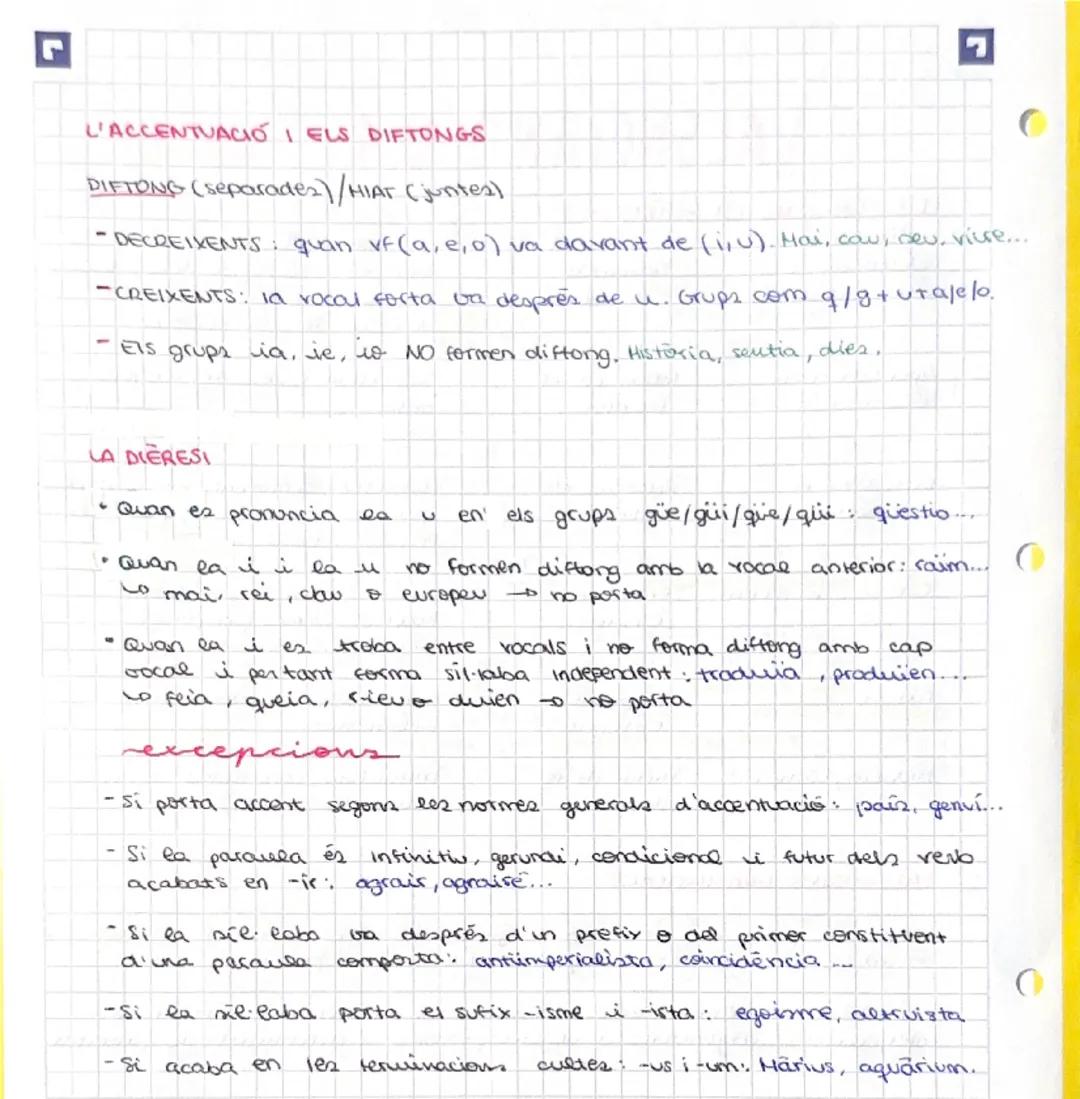 L'ACCENTUACIÓ I ELS DIFTONGS
DIFTONG (separades)/HIAT (juntes)
- DECREIXENTS: quan vf(a,e,o) va davant de (i,u). Mai, cau, seu, viure...
- CREIXENTS: la vocal forta va després de u. Grups com q/g+u+a/e/o.
- Els grups ia, ie, io NO formen diftong. Història, sentia, dies.
LA DIÈRESI
• Quan es pronuncia la u en els grups güe/güi/qüe/qüi: qüestio...
• Quan la i i la u no formen diftong amb la vocal anterior: raïm...
↳ mai, rei, clau o europeu → no porta
• Quan la i es troba entre vocals i no forma diftong amb cap
vocal i per tant forma síl·laba independent: traduïa, produïen...
↳ feia, queia, rieu o duien → no porta
excepcions
- Si porta accent segons les normes generals d'accentuació: país, genuí...
- Si la paraula és infinitiu, gerundi, condicional i futur dels verb
acabats en -ir: agrair, agrairé...
- Si la síl·laba va després d'un prefix o del primer constituent
d'una paraula composta: antiimperialista, coincidència...
- Si la síl·laba porta el sufix -isme i -ista: egoisme, altruista
- Si acaba en les terminacions cultes: -us i -um: Màrius, aquàrium.